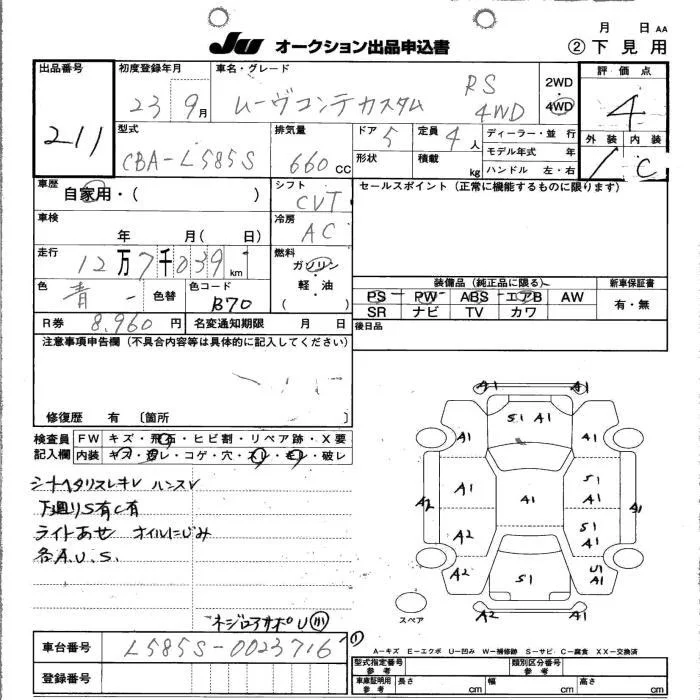 月 日 AA
JU オークション出品申込書 ② 下見用
出品番号 211
初度登録年月 23 9月
車名・グレード ムーヴコンテカスタム RS 4WD
2WD・4WD
評価点 4
型式 CBA-L585S
排気量 660 CC
ドア 5
形状
定員 4人
積載 kg
ディーラー・並行
モデル年式 年
ハンドル 左・右
外装 内装 C
車歴 自家用・( )
シフト CVT
セールスポイント (正常に機能するものに限ります)
車検 年 月( 日)
冷房 AC
走行 12万7千039 km
燃料 ガソリン・軽・油 ( )
色 青 色替
色コード B70
装備品 (純正品に限る)
PS PW ABS エアB AW
SR ナビ TV カワ
新車保証書
有・無
R券 8,960 円
名変通知期限 月 日
後日品
注意事項申告欄 (不具合内容等は具体的に記入してください)
修復歴 有 〔箇所 〕
検査員記入欄
FW キズ・飛石・ヒビ割・リペア跡・X要
内装 キズ・汚レ・コゲ・穴・スレ・キレ・破レ
シートヘタリスレキレ ハンスレ
下廻りS有C有
ライトあせ オイルにじみ
各A.U.S.
A1 A1
S1 A1
A1 A1
A1 S1 A1
A2 A1 A1
S1 A1
A2 S1 U1 A1
A2 A1
スペア
車台番号 L585S-0023716
登録番号
A−キズ E−エクボ U−凹み W−補修跡 S−サビ C−腐食 XX−交換済
型式指定番号 参考
類別区分番号 参考
車庫証明用 参考 長さ cm 幅 cm 高さ cm